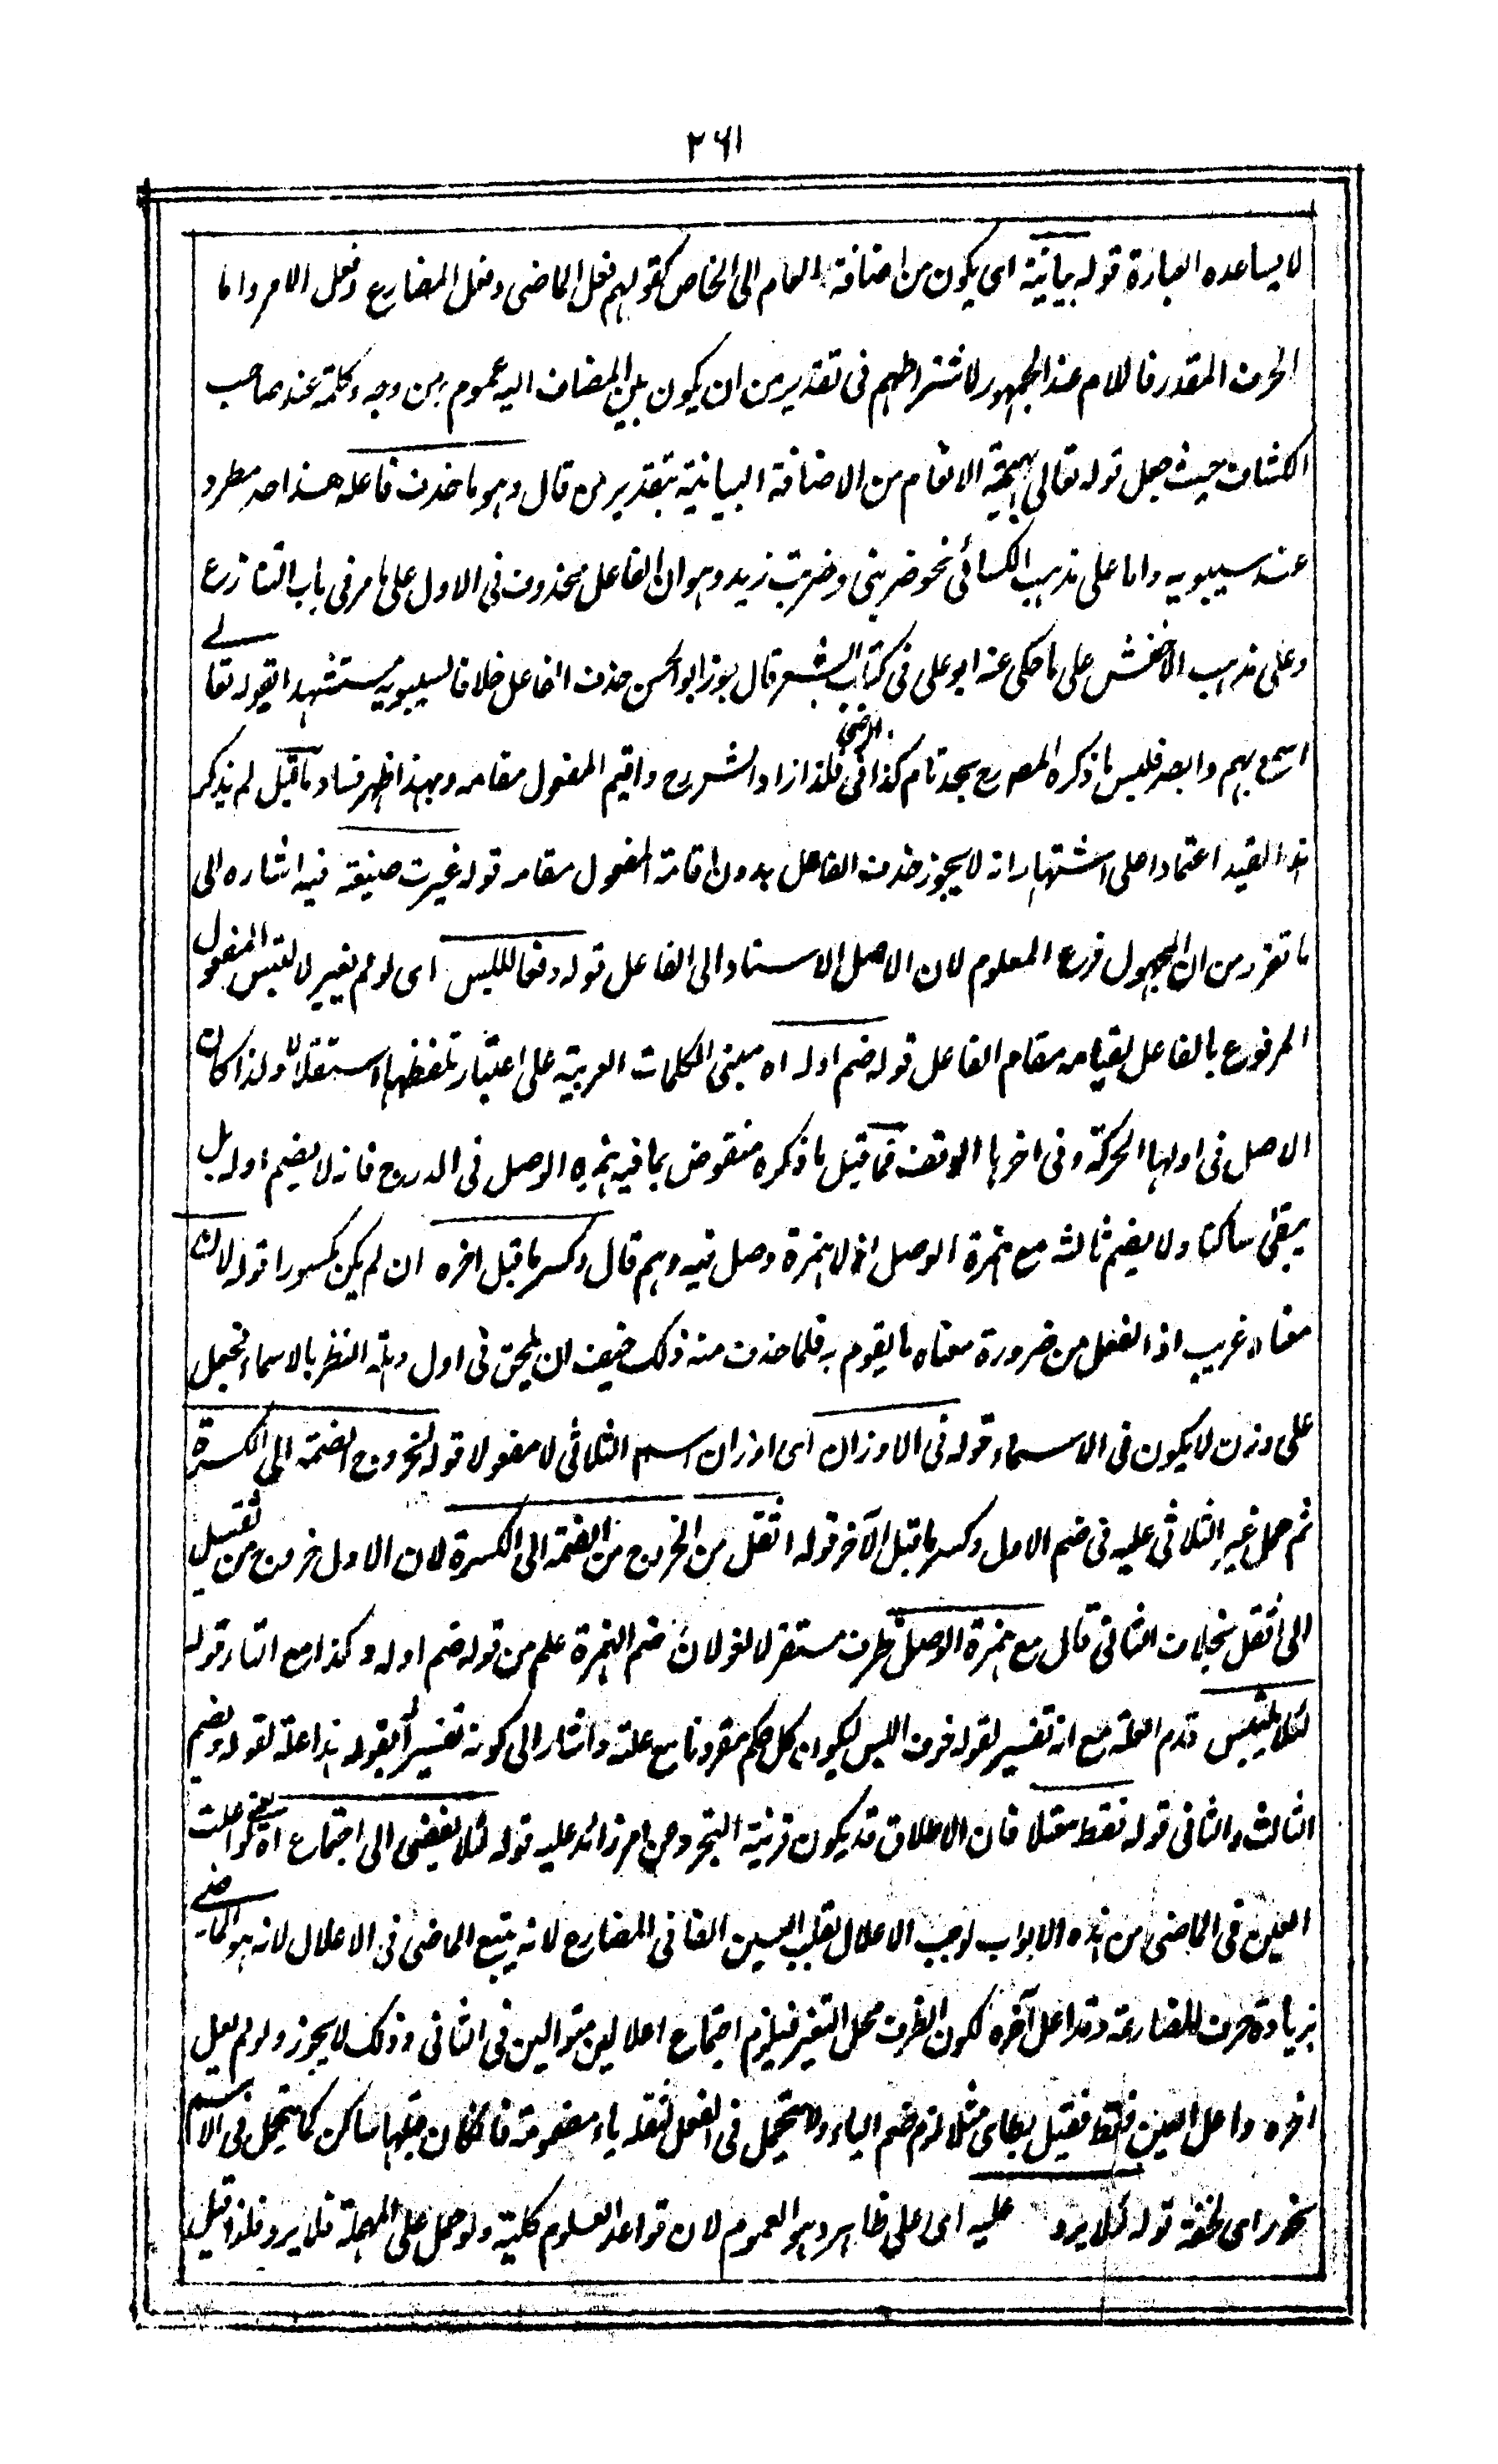 ۲۶۱
لا يساعده العبارة قوله بيانية اى يكون من اضافة العام الى الخاص كقولهم فعل الماضى وفعل المضارع وفعل الامر واما
الحرف المقدر فاللام عند الجمهور لاشتراطهم فى تقدير من ان يكون بين المضاف اليه عموم من وجه وكلمة عند صاحب
الكشاف حيث جعل قوله تعالى بهيمة الانعام من الاضافة البيانية بتقدير من قال وهو ما حذف فاعله هذا حد مطرد
عند سيبويه واما على مذهب الكسائى نحو ضربنى وضربت زيد وهو ان الفاعل محذوف فى الاول على ما مر فى باب التنازع
وعلى مذهب الاخفش على ما حكى عنه ابو على فى كتاب الشعر قال يجوز ابو الحسن حذف الفاعل خلافا لسيبويه مستشهدا بقوله تعالى
اسمع بهم وابصر فليس ما ذكره المصرح بحد تام كذا فى الرضى فلذا زاد الشرح واقيم المفعول مقامه وبهذا ظهر فساد ما قيل لم يذكر
هذا القيد اعتمادا على اشتهار انه لا يجوز حذف الفاعل بدون اقامة المفعول مقامه قوله غيرت صيغته فيه اشاره الى
ما تقرر من ان المجهول فرع المعلوم لان الاصل الاسناد الى الفاعل قوله دفعا لللبس اى لو لم يغير لالتبس المفعول
المرفوع بالفاعل لقيامه مقام الفاعل قوله ضم اوله اه مبنى الكلمات العربية على اعتبار تلفظها استقلالا ولذا كان
الاصل فى اولها الحركة وفى اخرها الوقف فما قيل ما ذكره منقوض بما فيه همزه الوصل فى الدرج فانه لا يضم اوله بل
يبقى ساكنا ولا يضم ثالثه مع همزة الوصل اذ لا همزة وصل فيه وهم قال وكسر ما قبل اخره ان لم يكن مكسورا قوله لان
معناه غريب اذ الفعل من ضرورة معناه ما يقوم به فلما حذف منه ذلك خيف ان يلحق فى اول وهلة النظر بالاسماء فجعل
على وزن لا يكون فى الاسماء قوله فى الاوزان اى اوزان اسم الثلاثى لا مفعولا قوله لخروج الضمة الى الكسرة
ثم حمل غير الثلاثى عليه فى ضم الاول وكسر ما قبل الآخر قوله اثقل من الخروج من الضمة الى الكسرة لان الاول خروج من ثقيل
الى اثقل بخلاف الثانى قال مع همزة الوصل ظرف مستقر لا لغو لان ضم الهمزة علم من قوله ضم اوله وكذا مع التاء قوله
لئلا يلتبس قدم العلة مع انه تفسير لقوله خوف اللبس ليكون كل حكم مقرونا مع علته واشار الى كونه تفسيرا بقوله هذا علة لقوله ويضم
الثالث والثانى قوله فقط معتلا فان الاطلاق قد يكون قرينة التجرد عن امر زائد عليه قوله لئلا يفضى الى اجتماع اه يعنى لو اعلت
العين فى الماضى من هذه الابواب لوجب الاعلال بقلب العين الفا فى المضارع لانه يتبع الماضى فى الاعلال لانه هو الماضى
بزيادة حرف المضارعة وقد اعل آخره لكون الطرف محل التغير فيلزم اجتماع اعلالين متوالين فى الثانى وذلك لا يجوز ولو لم يعل
اخره واعل العين فقط فقيل يطاى مثلا لزم ضم الياء ولا يتحمل فى الفعل لثقله ياء مضمومة فان كان قبلها ساكن كما يتحمل فى الاسم
نحو راى لخفته قوله لئلا يرد عليه اى على ظاهره وهو العموم لان قواعد العلوم كلية ولو حمل على المهملة فلا يرد فلذا قيل